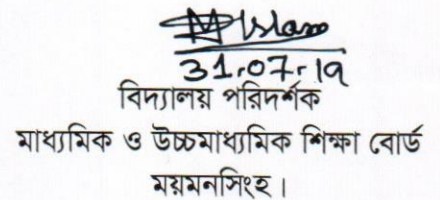 M Islam
31.07.19
বিদ্যালয় পরিদর্শক
মাধ্যমিক ও উচ্চমাধ্যমিক শিক্ষা বোর্ড
ময়মনসিংহ।